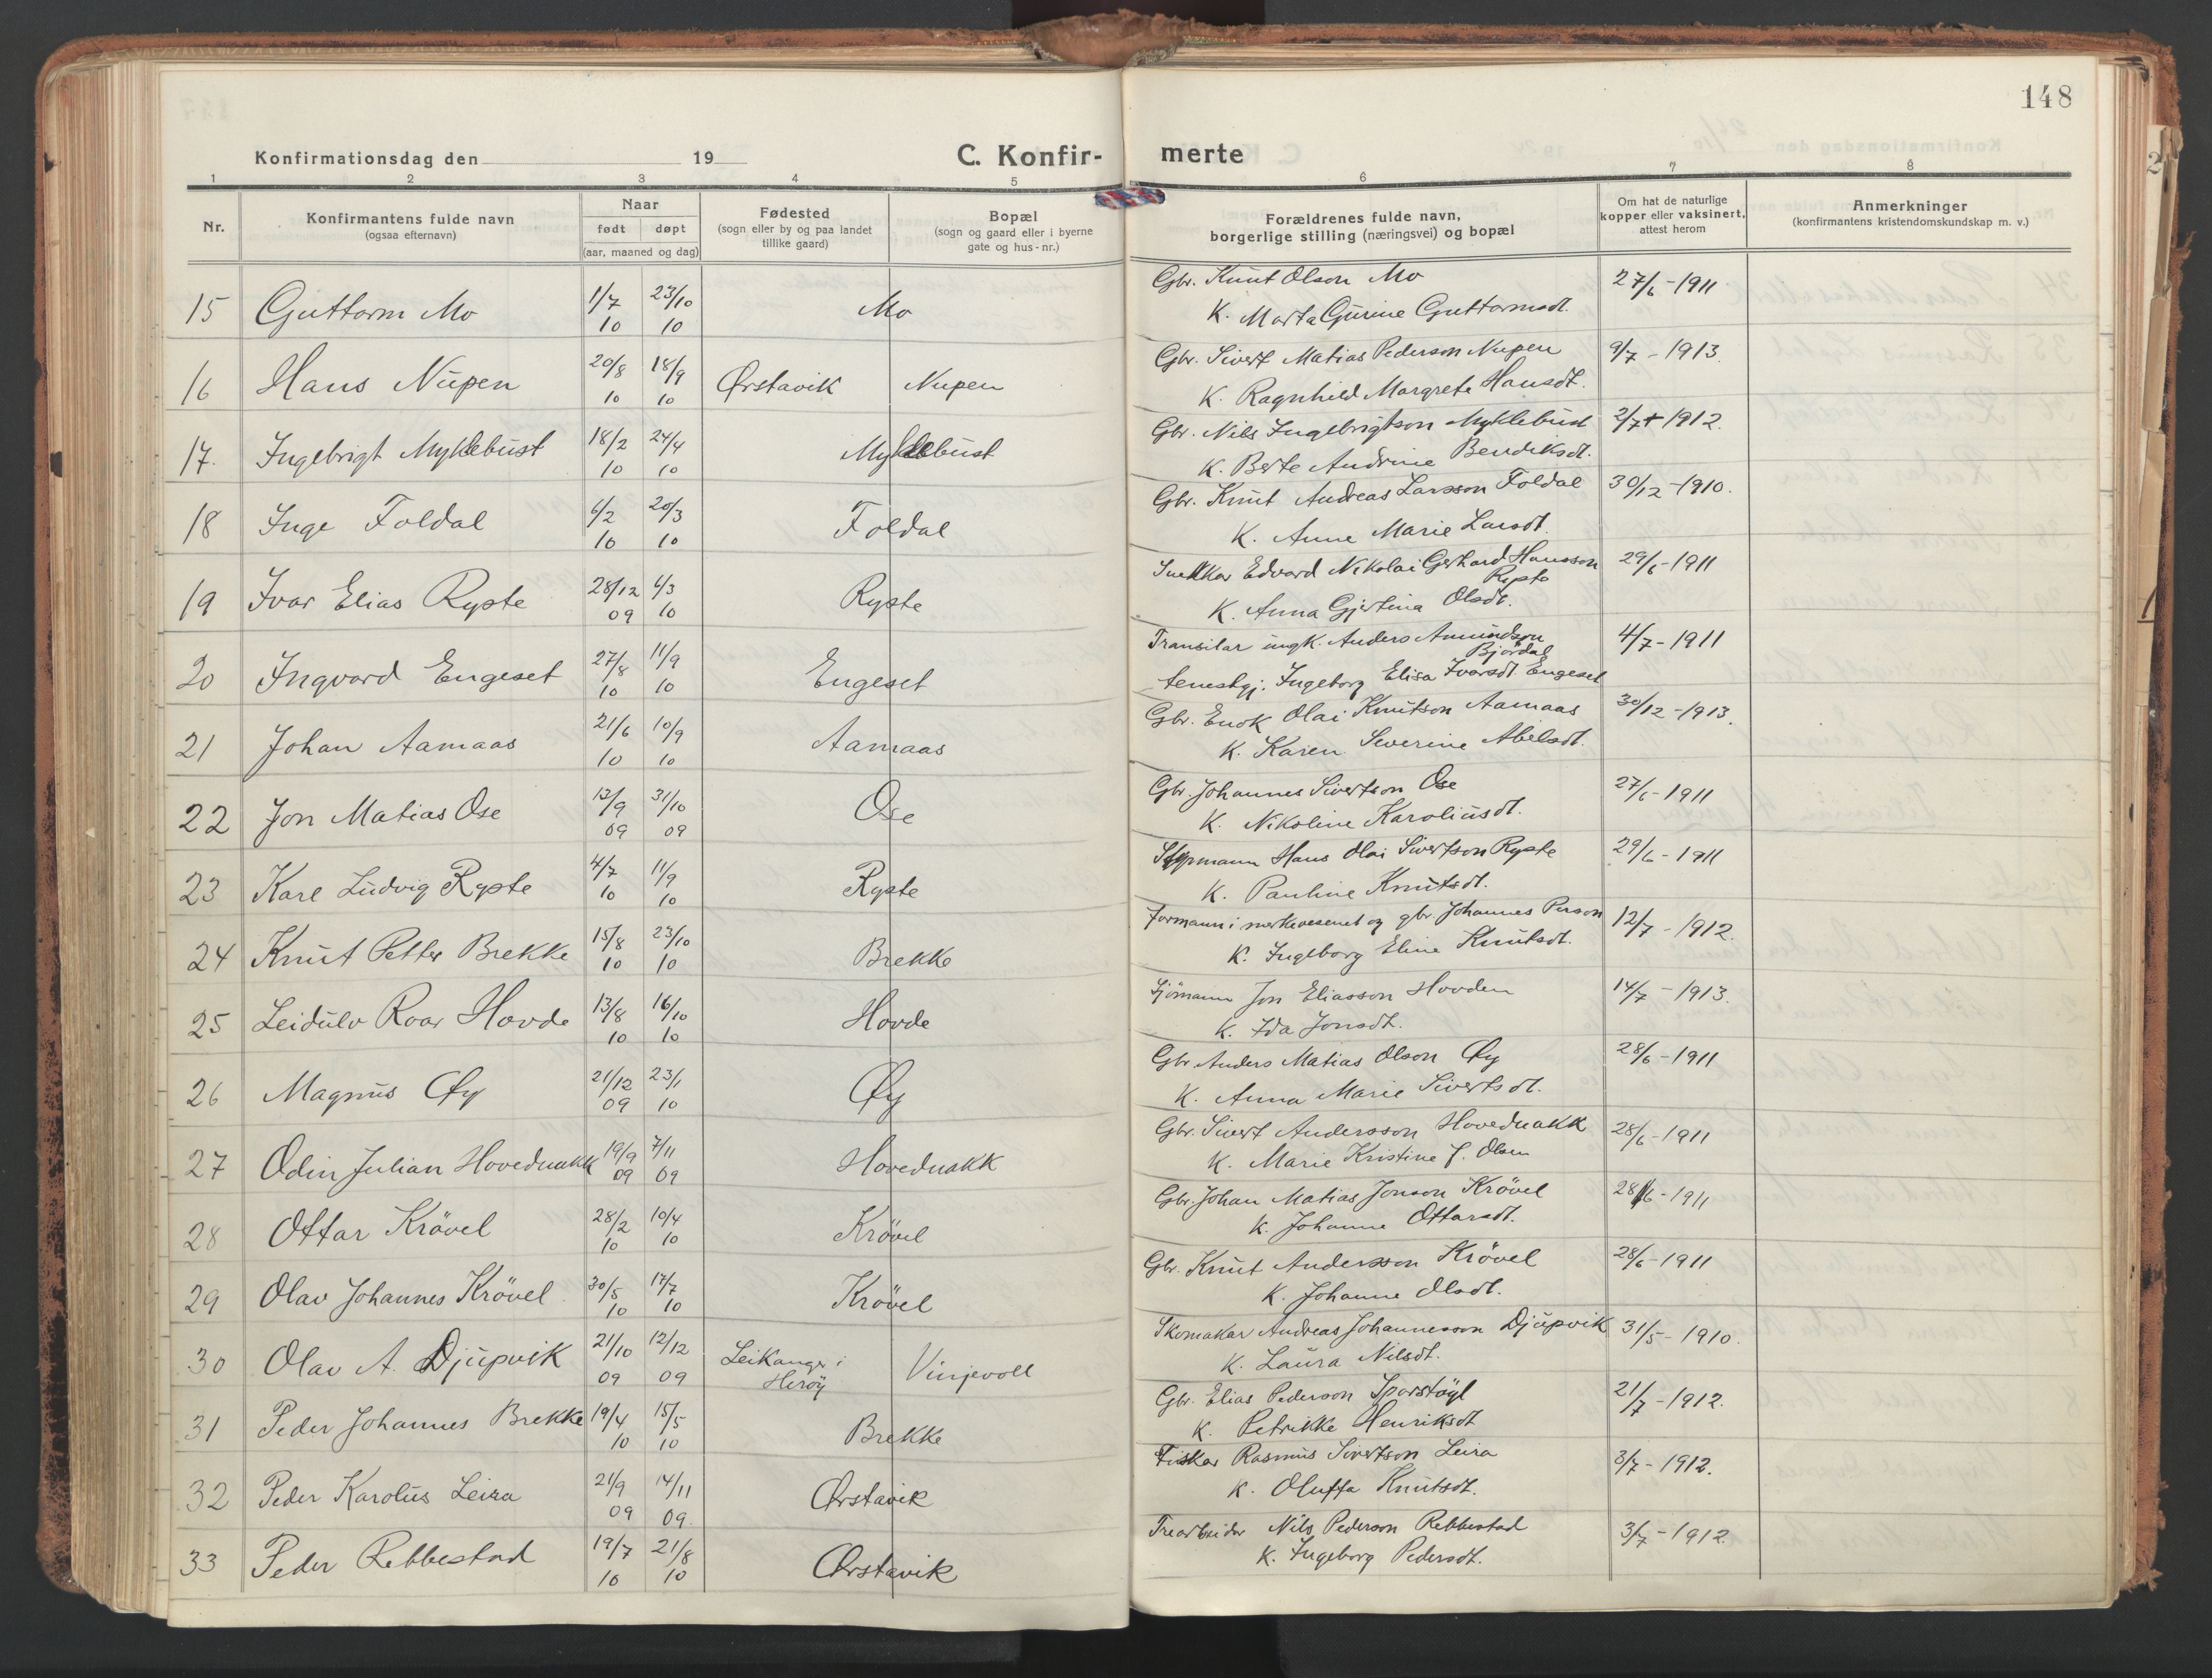 148
Konfirmationsdag den 19
C. Konfir-
merte
1 2 3 4 5 6 7 8
Nr.
Konfirmantens fulde navn
(ogsaa efternavn)
Naar
født døpt
(aar, maaned og dag)
Fødested
(sogn eller by og paa landet
tillike gaard)
Bopæl
(sogn og gaard eller i byerne
gate og hus-nr.)
Forældrenes fulde navn,
borgerlige stilling (næringsvei) og bopæl
Om hat de naturlige
kopper eller vaksinert,
attest herom
Anmerkninger
(konfirmantens kristendomskundskap m. v.)
15 Guttorm Mo 1/7 10 23/10 10 Mo
Gbr. Knut Olson Mo 27/6-1911
K. Marta Gurine Guttormsdt.
16 Hans Nupen 20/8 10 18/9 10 Ørstavik Nupen
Gbr. Sivert Matias Pederson Nupen 9/7-1913.
K. Ragnhild Margrete Hansdt.
17. Ingebrigt Myklebust 18/2 10 24/4 10 Myklebust
Gbr. Nils Ingebrigtson Myklebust 2/7-1912.
K. Berte Andrine Bendiksdt.
18 Inge Foldal 6/2 10 20/3 10 Foldal
Gbr. Knut Andreas Larsson Foldal 30/12-1910.
K. Anne Marie Larsdt.
19 Ivar Elias Ryste 28/12 09 6/3 10 Ryste
Snekkar Edvard Nikolai Gerhard Hansson 29/6-1911
Ryste
K. Anna Gjertina Olsdt.
20 Ingvard Engeset 27/8 10 11/9 10 Engeset
Transilar ungk. Anders Amundson 4/7-1911
Bjørdal
tenestgj. Ingeborg Elisa Ivarsdt. Engeset
21 Johan Aamaas 21/6 10 10/9 10 Aamaas
Gbr. Enok Olai Knutson Aamaas 30/12-1913.
K. Karen Severine Abelsdt.
22 Jon Matias Ose 13/9 09 31/10 09 Ose
Gbr. Johannes Sivertson Ose 27/6-1911
K. Nikoline Karoliusdt.
23 Kare Ludvig Ryste 4/7 10 11/9 10 Ryste
Styrmann Hans Olai Sivertson Ryste 29/6-1911
K. Pauline Knutsdt.
24 Knut Petter Brekke 15/8 10 23/10 10 Brekke
Formann i merkevesenet og gbr. Johannes Person 12/7-1912.
K. Ingeborg Eline Knutsdt.
25 Leidulv Roar Hovde 13/8 10 16/10 10 Hovde
Sjömann Jon Eliasson Hovden 14/7-1913.
K. Ida Jonsdt.
26 Magnus Øy 21/12 09 23/1 10 Øy
Gbr. Anders Matias Olson Øy 28/6-1911
K. Anna Marie Sivertsdt.
27 Odin Julian Hovednakk 19/9 09 7/11 09 Hovednakk
Gbr. Sivert Andersson Hovednakk 28/6-1911
K. Marie Kristine f. Olsen
28 Ottar Krövel 28/2 10 10/4 10 Krövel
Gbr. Johan Matias Jonson Krövel 28/6-1911
K. Johanne Ottarsdt.
29 Olav Johannes Krövel 30/5 10 17/7 10 Krövel
Gbr. Knut Andersson Krövel 28/6-1911
K. Johanne Olsdt.
30 Olav A. Djupvik 21/10 09 12/12 09 Leikanger i Herøy Vinjevoll
Skomakar Andreas Johannesson Djupvik 31/5-1910.
K. Laura Nilsdt.
31 Peder Johannes Brekke 19/4 10 15/5 10 Brekke
Gbr. Elias Pederson Sporstöyl 21/7-1912.
K. Petrikke Henriksdt
32 Peder Karolus Leira 21/9 09 14/11 09. Ørstavik
Fiskar Rasmus Sivertson Leira 3/7-1912.
K. Oluffa Knutsdt.
33 Peder Rebbestad 19/7 10 21/8 10 Ørstavik
Trearbeidar Nils Pederson Rebbestad 3/7-1912.
K. Ingeborg Pedersdt.